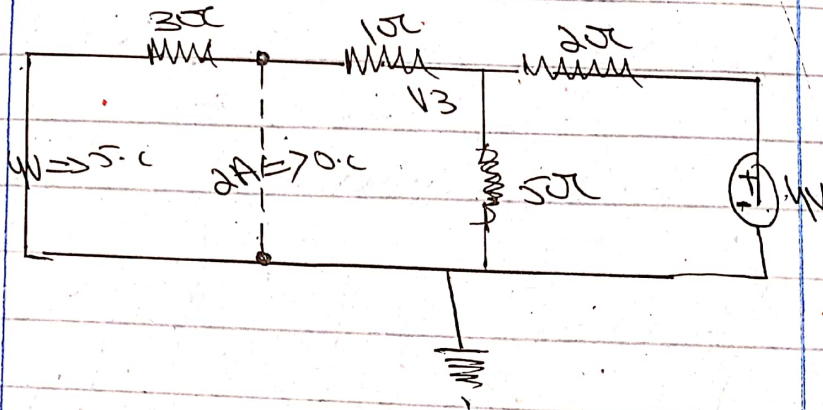 3Ω 1Ω 2Ω
V3
4V => S.C 2A => O.C 5Ω + - 4V